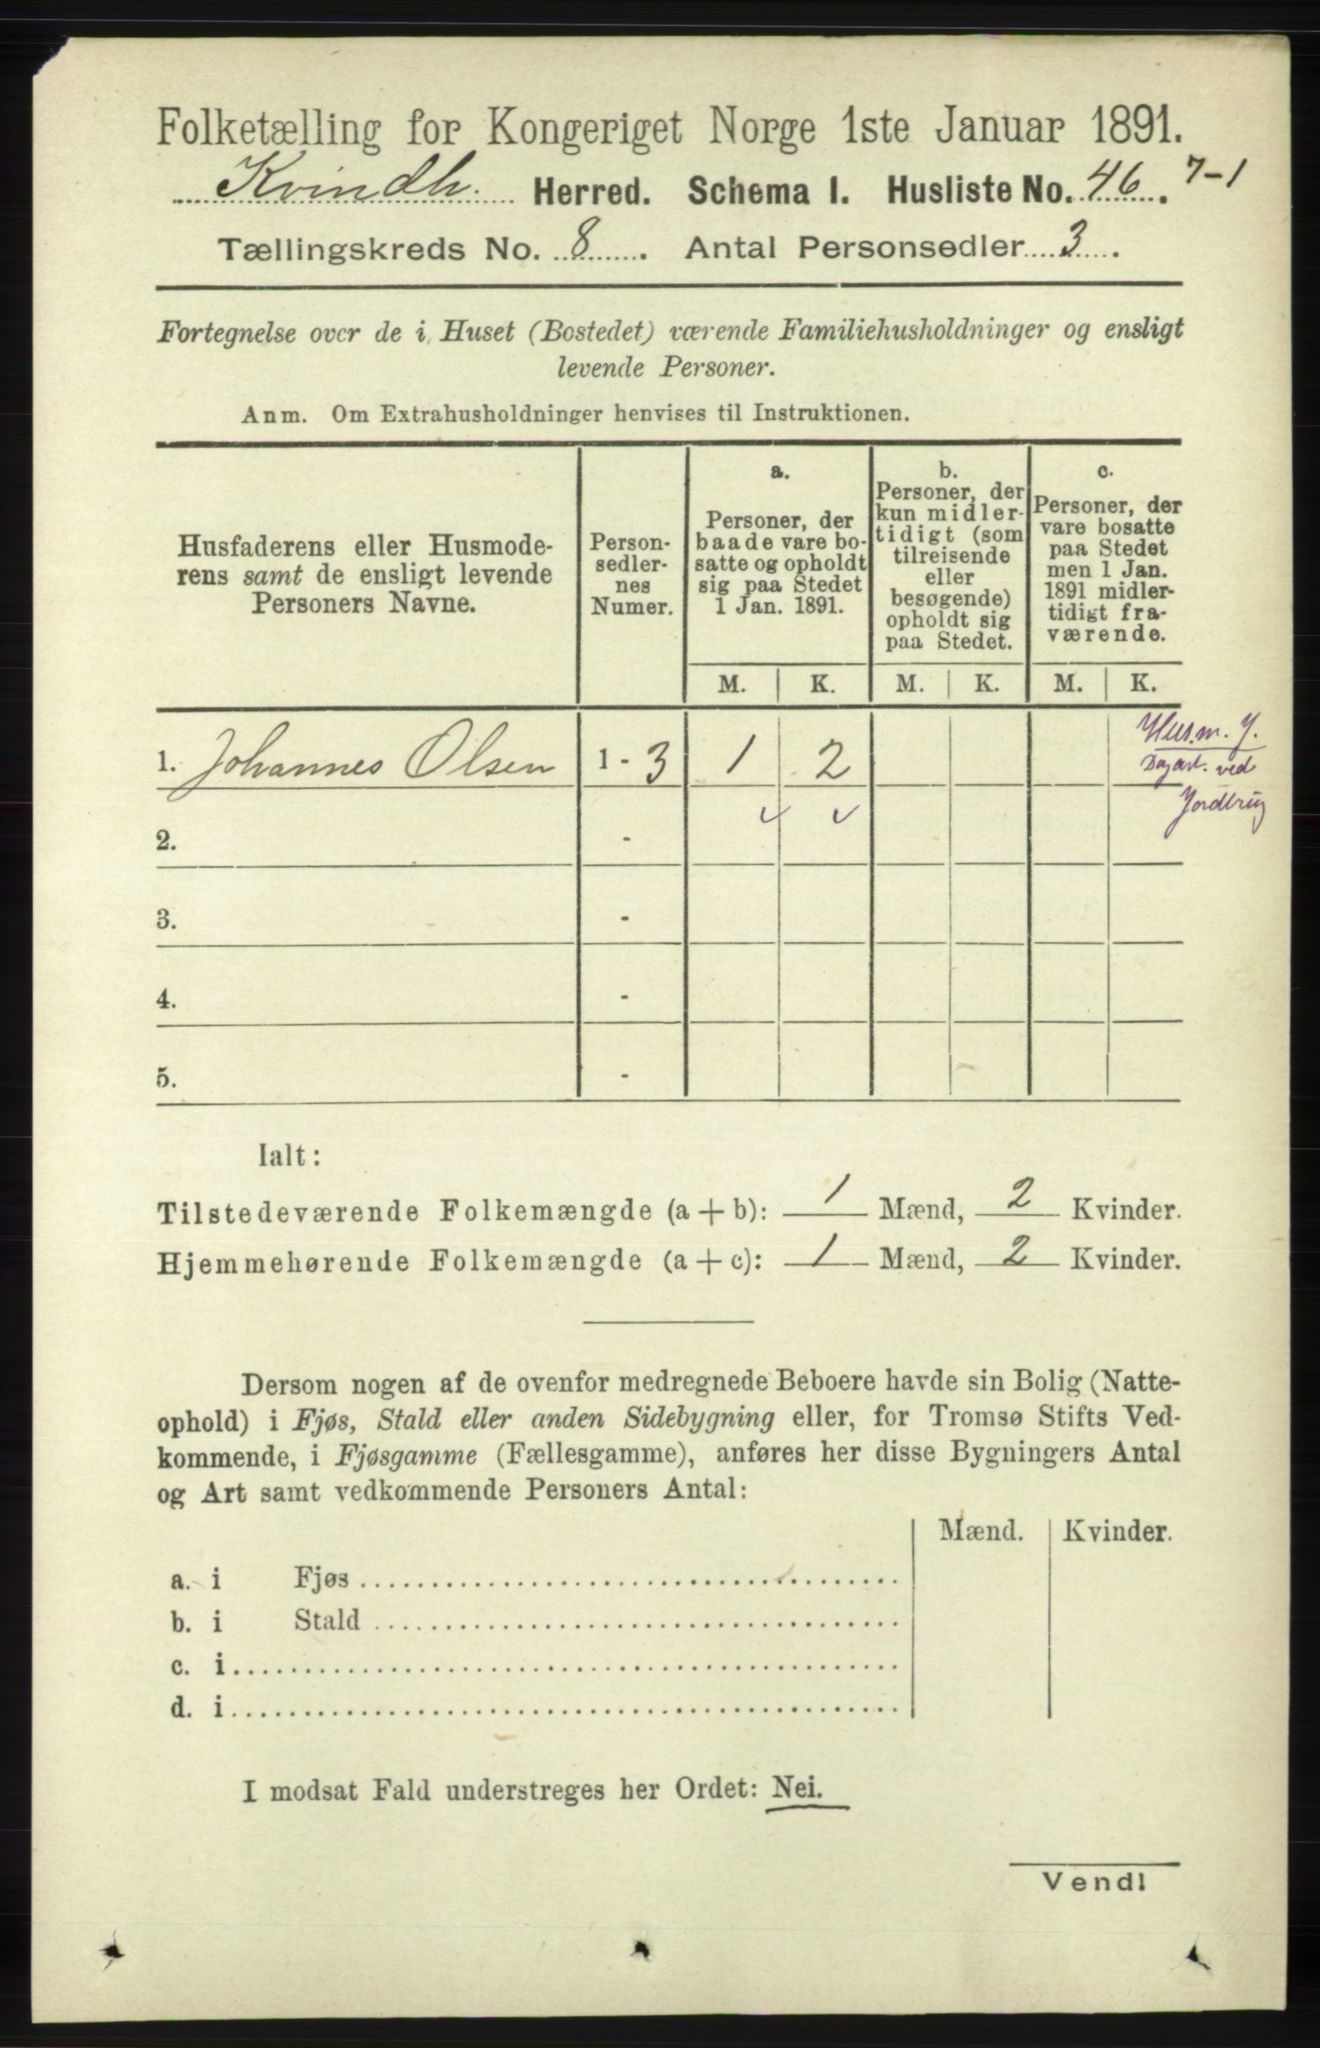 Folketælling for Kongeriget Norge 1ste Januar 1891.
Kvindh. Herred. Schema I. Husliste No. 46. 7-1
Tællingskreds No. 8. Antal Personsedler 3.
Fortegnelse over de i Huset (Bostedet) værende Familiehusholdninger og ensligt
levende Personer.
Anm. Om Extrahusholdninger henvises til Instruktionen.
Husfaderens eller Husmode-
rens samt de ensligt levende
Personers Navne.
Person-
sedler-
nes
Numer.
a.
Personer, der
baade vare bo-
satte og opholdt
sig paa Stedet
1 Jan. 1891.
b.
Personer, der
kun midler-
tidigt (som
tilreisende
eller
besøgende)
opholdt sig
paa Stedet.
c.
Personer, der
vare bosatte
paa Stedet
men 1 Jan.
1891 midler-
tidigt fra-
værende.
M. K. M. K. M. K.
1. Johannes Olsen 1 - 3 1 2
Husm. J.
Dagarb. ved
Jordbrug
2. -
3. -
4. -
5. -
Ialt:
Tilstedeværende Folkemængde (a + b): 1 Mænd, 2 Kvinder.
Hjemmehørende Folkemængde (a + c): 1 Mænd, 2 Kvinder.
Dersom nogen af de ovenfor medregnede Beboere havde sin Bolig (Natte-
ophold) i Fjøs, Stald eller anden Sidebygning eller, for Tromsø Stifts Ved-
kommende, i Fjøsgamme (Fællesgamme), anføres her disse Bygningers Antal
og Art samt vedkommende Personers Antal:
Mænd. Kvinder.
a. i Fjøs
b. i Stald
c. i
d. i
I modsat Fald understreges her Ordet: Nei.
Vend!